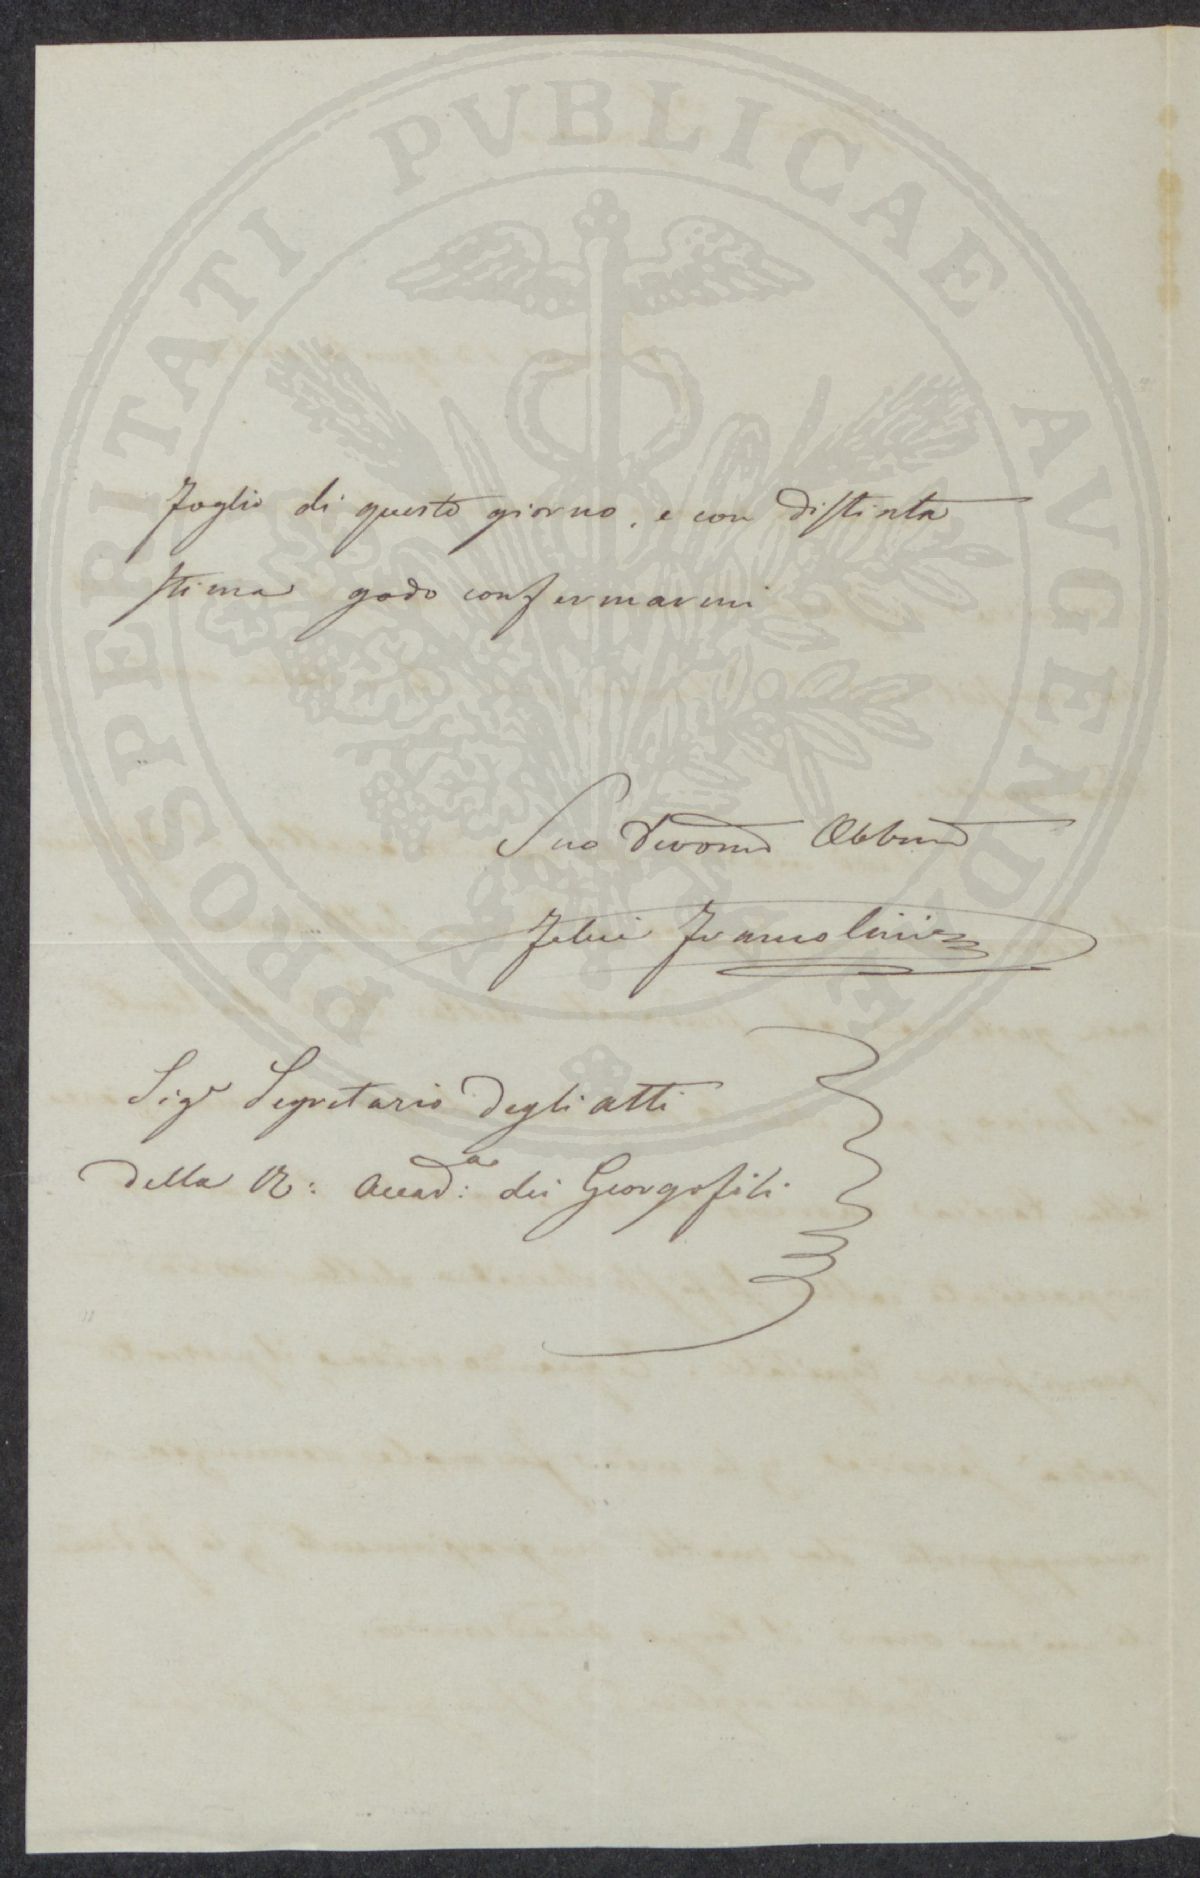 PROSPERITATI PUBLICAE AUGENDAE
foglio di questo giorno, e con distinta
stima godo confermarmi
Suo Devomo Obbmo
Felice Francolini
Sigr Segretario degli atti
della R: Accad:a dei Georgofili